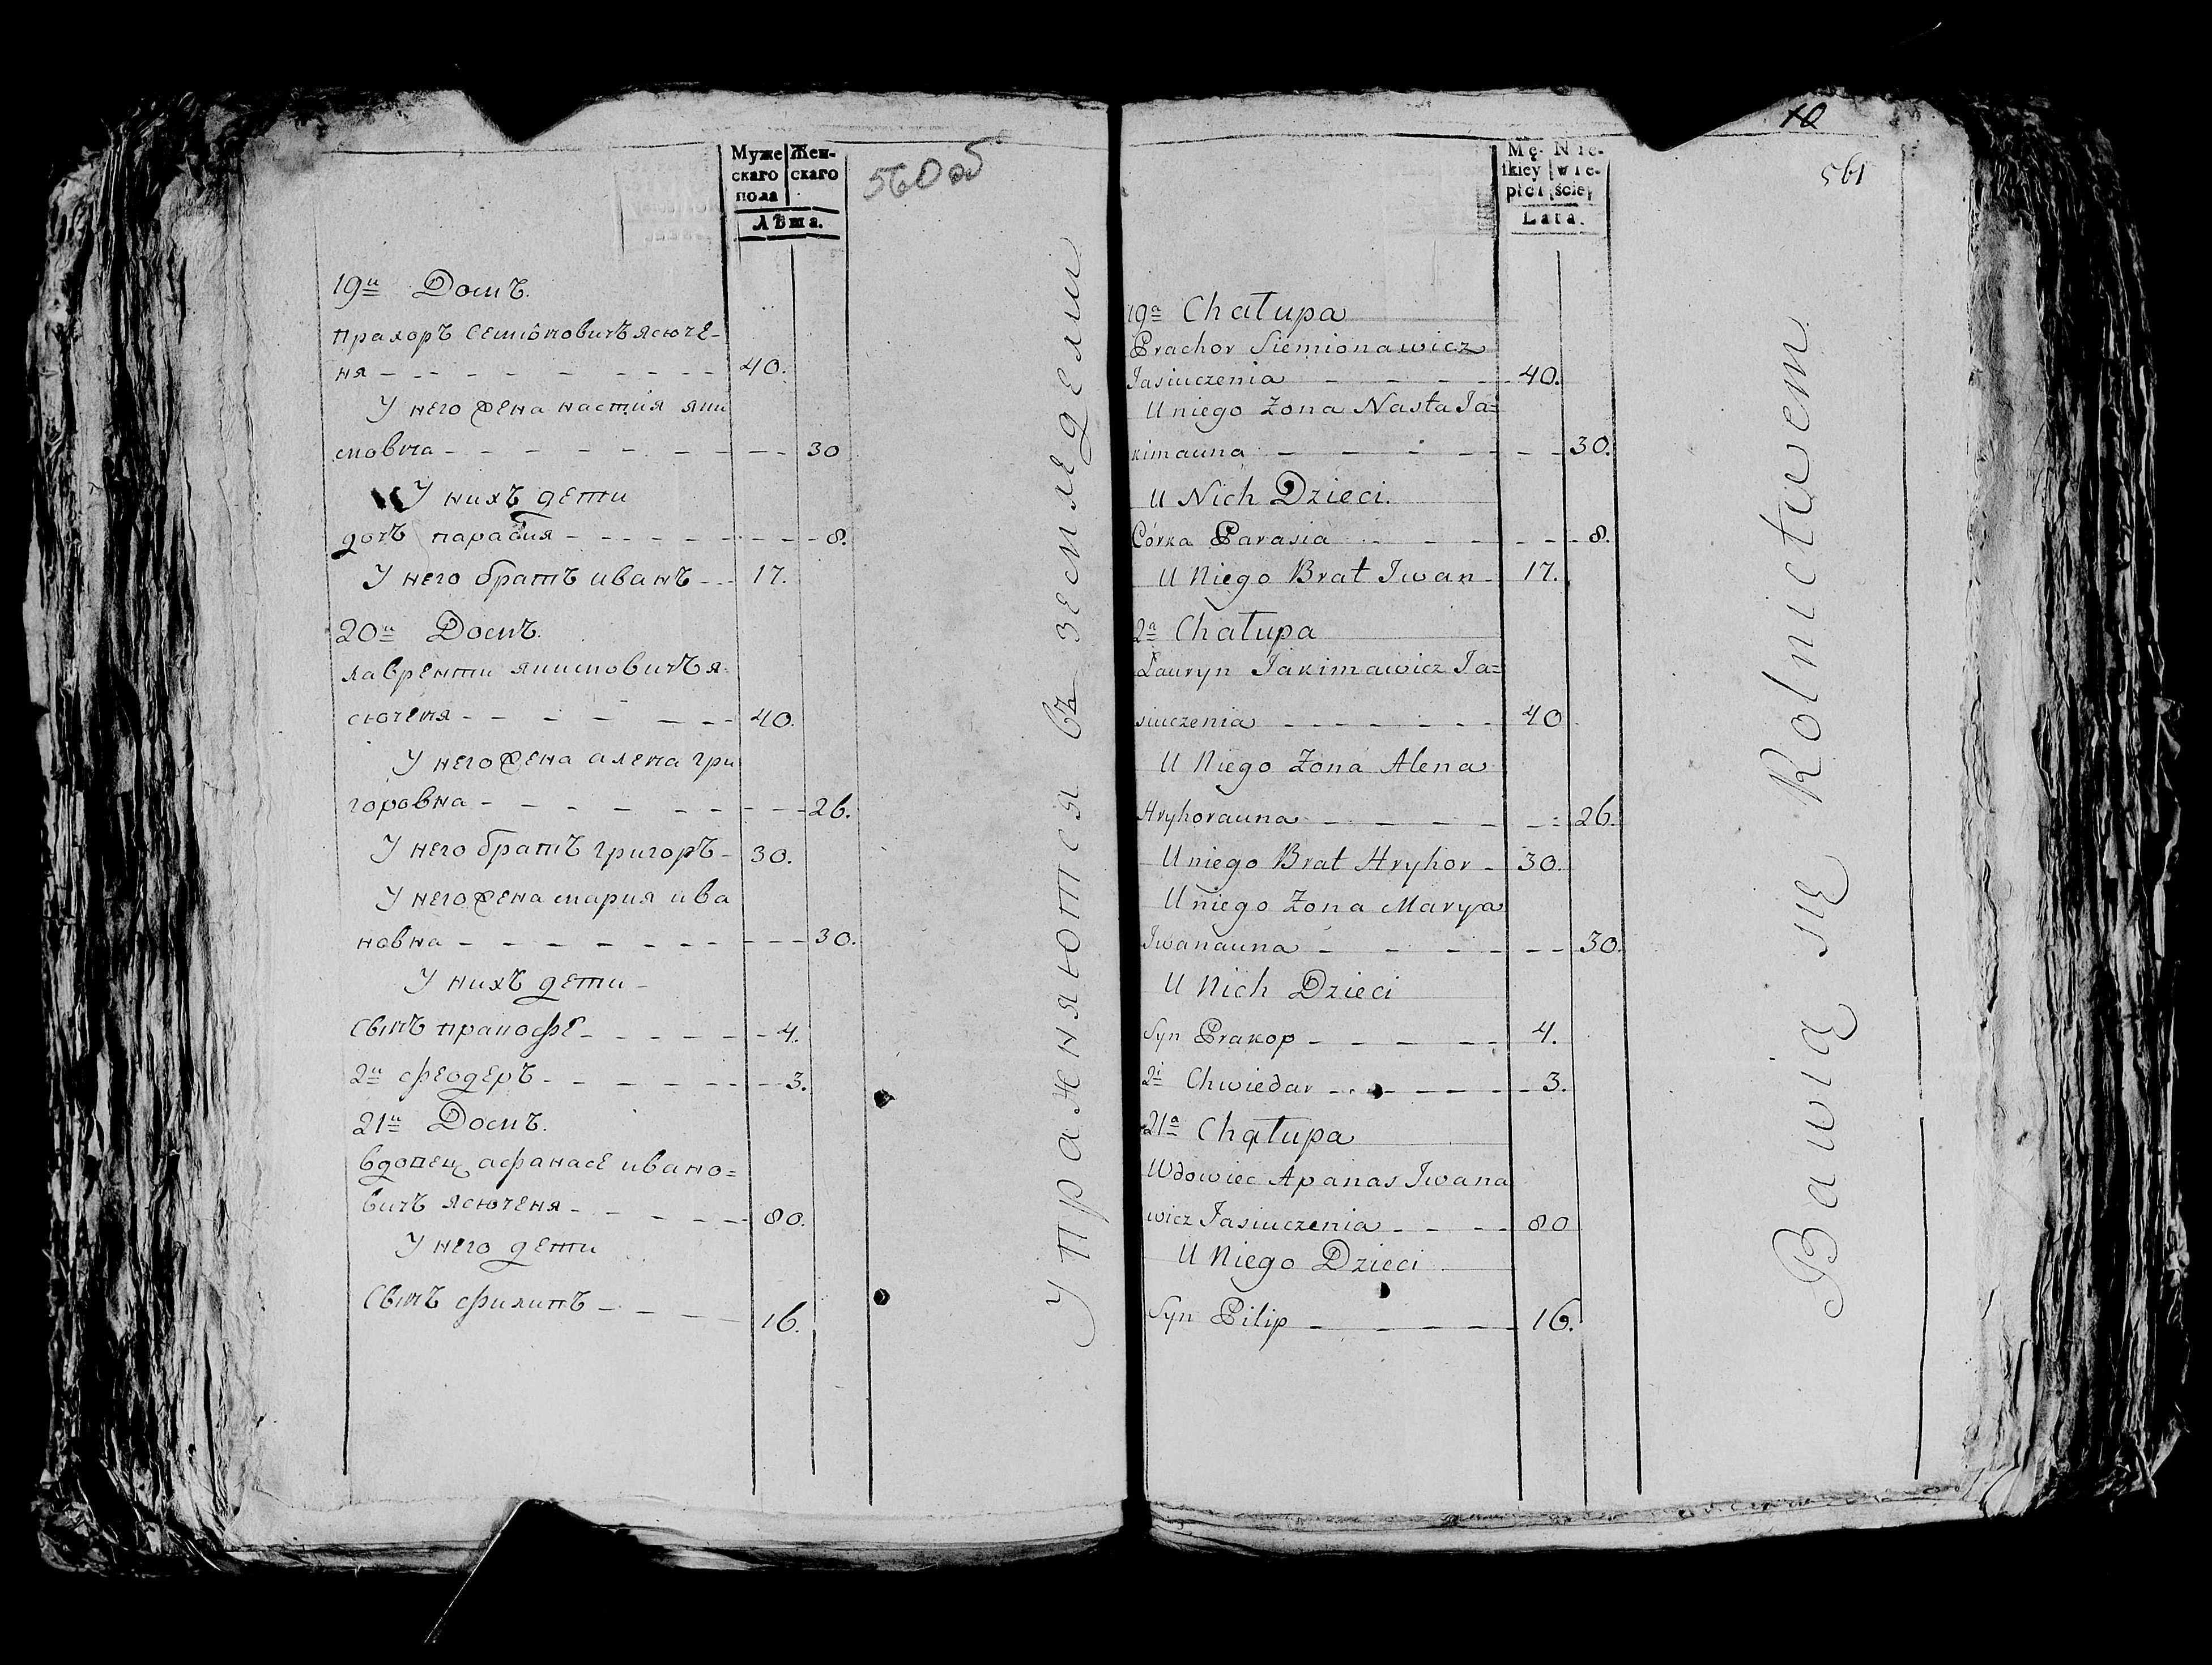 Муже Жен-
скаго скаго
пола
Лѣта.
560 об
19й Домъ.
прахоръ семіоновичъ ясюче-
ня - - - - - - - - - 40.
У него жена настия яки
мовна - - - - - - - - - 30
У нихъ дети
дочъ парасия - - - - - - - - - 8.
У него братъ иванъ - - 17.
20й Домъ.
лавренти якимовичъ я-
сюченя - - - - - - - 40.
У него жена алена гри
горовна - - - - - - - - - 26.
У него братъ григоръ - 30.
У него жена мария ива
новна - - - - - - - - - - 30.
У нихъ дети -
Сынъ пракофе - - - - - - 4.
2й феодеръ - - - - - - - 3.
21й Домъ.
вдовец афанасе ивано=
вичъ ясюченя - - - - - 80.
У него дети
Сынъ филипъ - - - - 16.
Упражняются въ земледелии
10
561
Mę- Nie-
skiey wie-
płci ściey
Lata.
19a Chałupa
Prachor Siemionawicz
Jasiuczenia - - - - - 40.
U niego Żona Nasta Ja=
kimauna - - - - - - - 30.
U Nich Dzieci.
Córka Parasia - - - - - - 8.
U Niego Brat Iwan - 17.
2a Chałupa
Lauryn Jakimawicz Ja=
siuczenia - - - - - - 40
U Niego Żona Alena
Hryhorauna - - - - - - 26.
U niego Brat Hryhor - 30.
U niego Żona Marya
Iwanauna - - - - - - 30.
U Nich Dzieci
Syn Prakop - - - - - 4.
2i Chwiedar - - - - - - 3.
21a Chałupa
Wdowiec Apanas Iwana
wicz Jasiuczenia - - - - 80
U Niego Dzieci
Syn Pilip - - - - - 16.
Bawią się Rolnictwem